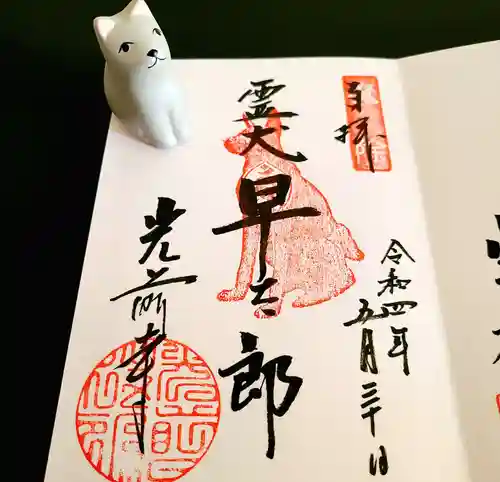 奉拝
令和四年
五月三十日
霊犬
早太郎
光前寺